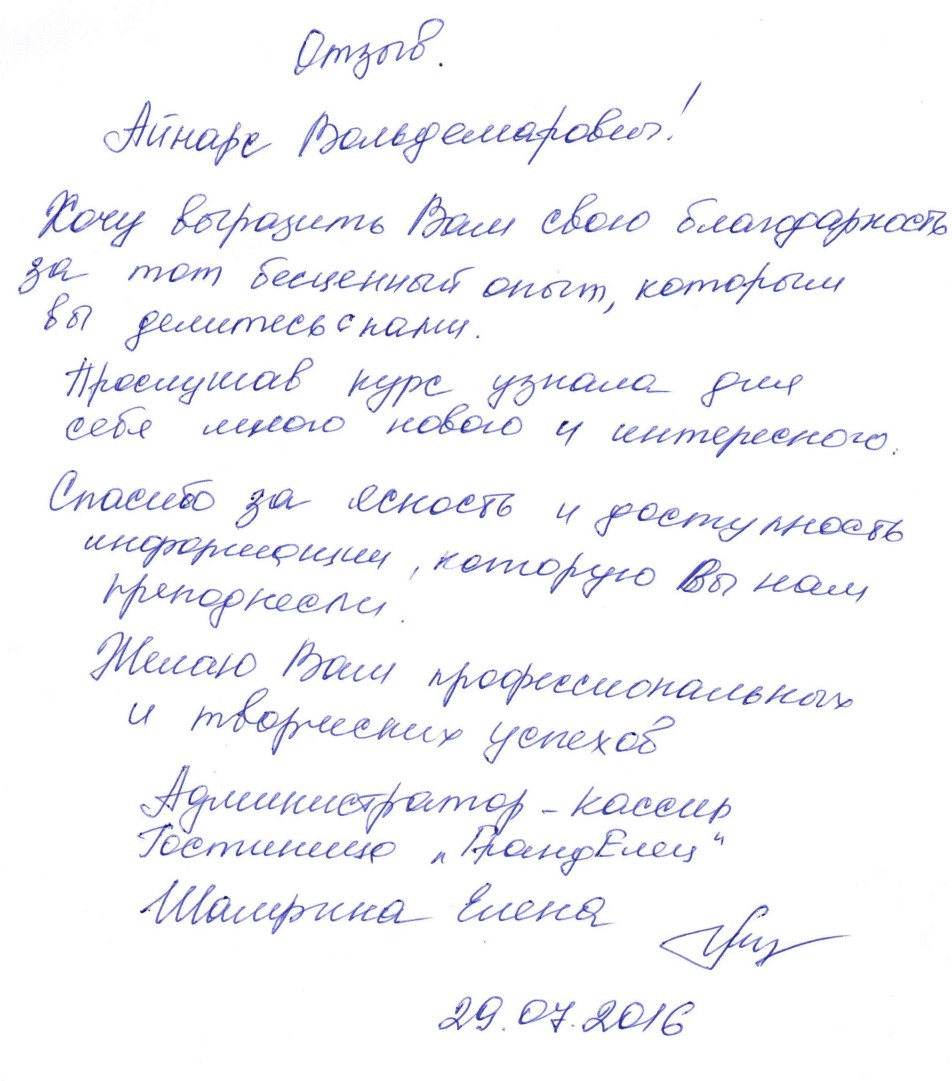 Отзыв.
Айнарс Вольдемарович!
Хочу выразить Вам свою благодарность
за тот бесценный опыт, которым
вы делитесь с нами.
Прослушав курс узнала для
себя много нового и интересного.
Спасибо за ясность и доступность
информации, которую Вы нам
преподнесли.
Желаю Вам профессиональных
и творческих успехов
Администратор-кассир
Гостиница „ГрандЕлец“
Елена
29.07.2016